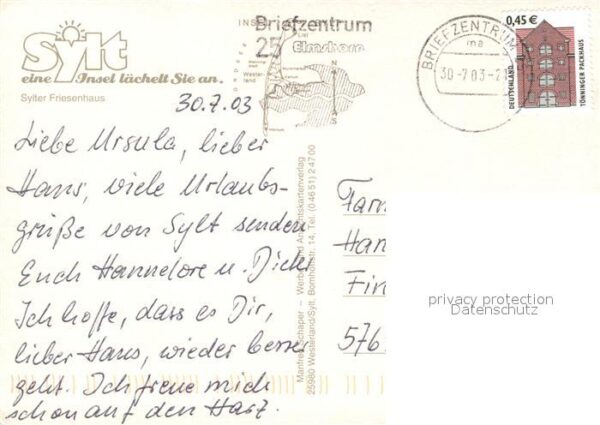 Sylt
eine Insel lächelt Sie an.
Sylter Friesenhaus
Briefzentrum
25
Elmshorn
Wester-
land
N
S
BRIEFZENTRUM
ma
30-7.03-2
0,45 €
DEUTSCHLAND
TÖNNINGER PACKHAUS
30.7.03
Liebe Ursula, lieber
Hans, viele Urlaubs-
grüße von Sylt senden
Euch Hannelore u. Dieter
Ich hoffe, dass es Dir,
lieber Hans, wieder besser
geht. Ich freue mich
schon auf den Harz.
Manfred Schaper – Werbe- und Ansichtskartenverlag
25980 Westerland/Sylt, Bomhoffstr. 14, Tel. (04651) 24700
Fam
Han
Fin
576
privacy protection
Datenschutz